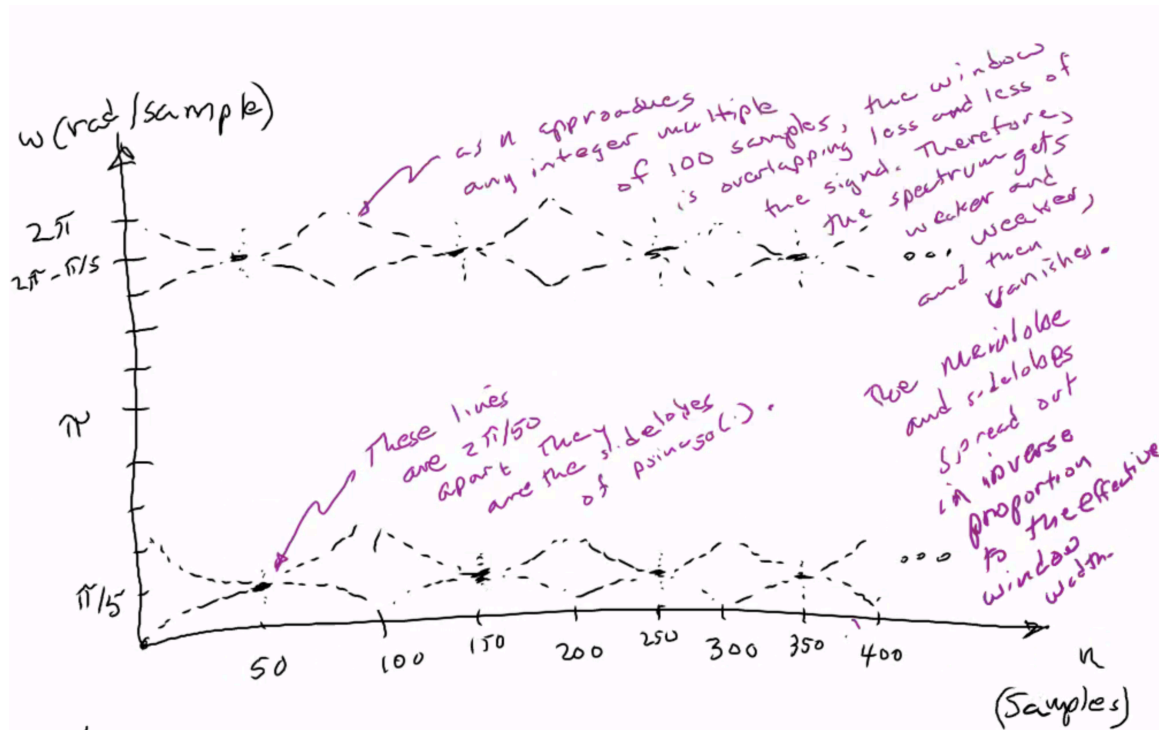 w (rad/sample)
2π
2π-π/5
π
π/5
as n approaches
any integer multiple
of 100 samples, the window
is overlapping less and less of
the signal. Therefore,
the spectrum gets
weaker and
weaker,
and then
vanishes.
These lines
are 2π/50
apart They
are the sidelobes
of psinc50(.).
The mainlobe
and sidelobes
spread out
in inverse
proportion
to the effective
window
width.
50 100 150 200 250 300 350 400
n
(Samples)